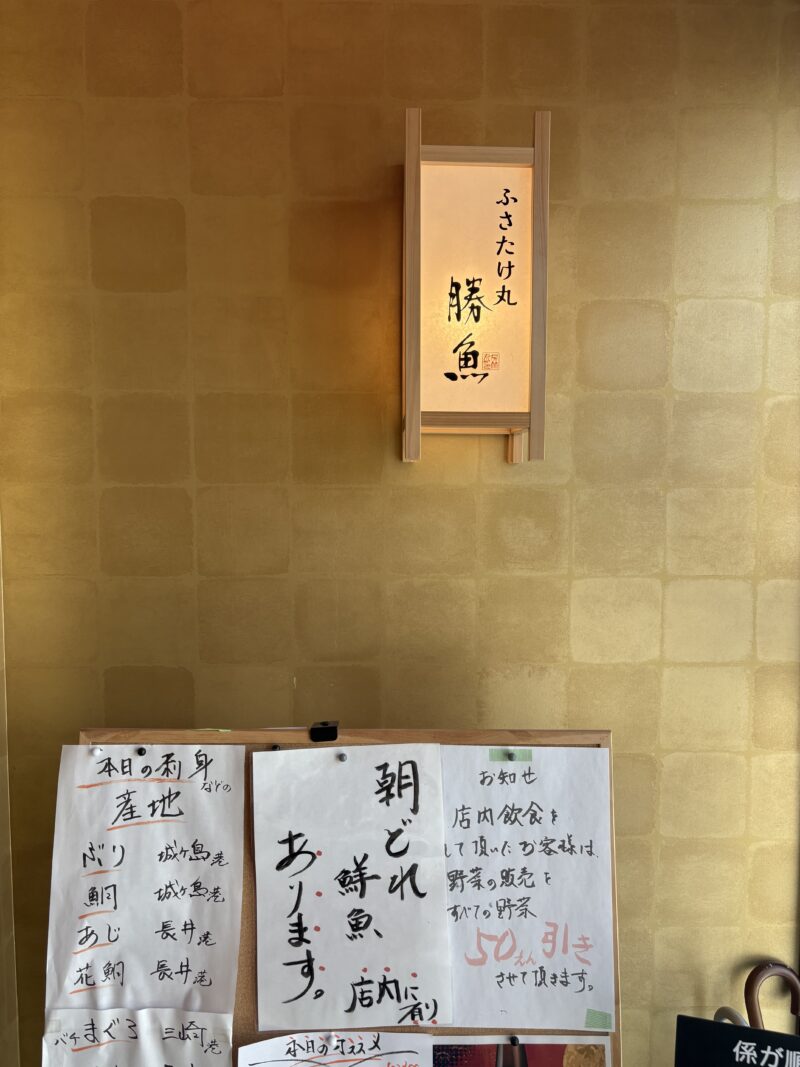 ふさたけ丸
勝魚
本日の刺身
などの
産地
ぶり 城ヶ島港
鯛 城ヶ島港
あじ 長井港
花鯛 長井港
バチまぐろ 三崎町港
朝どれ
鮮魚、
あります。
店内に
有り
お知せ
店内飲食を
して頂いたお客様は、
野菜の販売を
すべての野菜
50えん引き
させて頂きます。
本日のオススメ
係が順